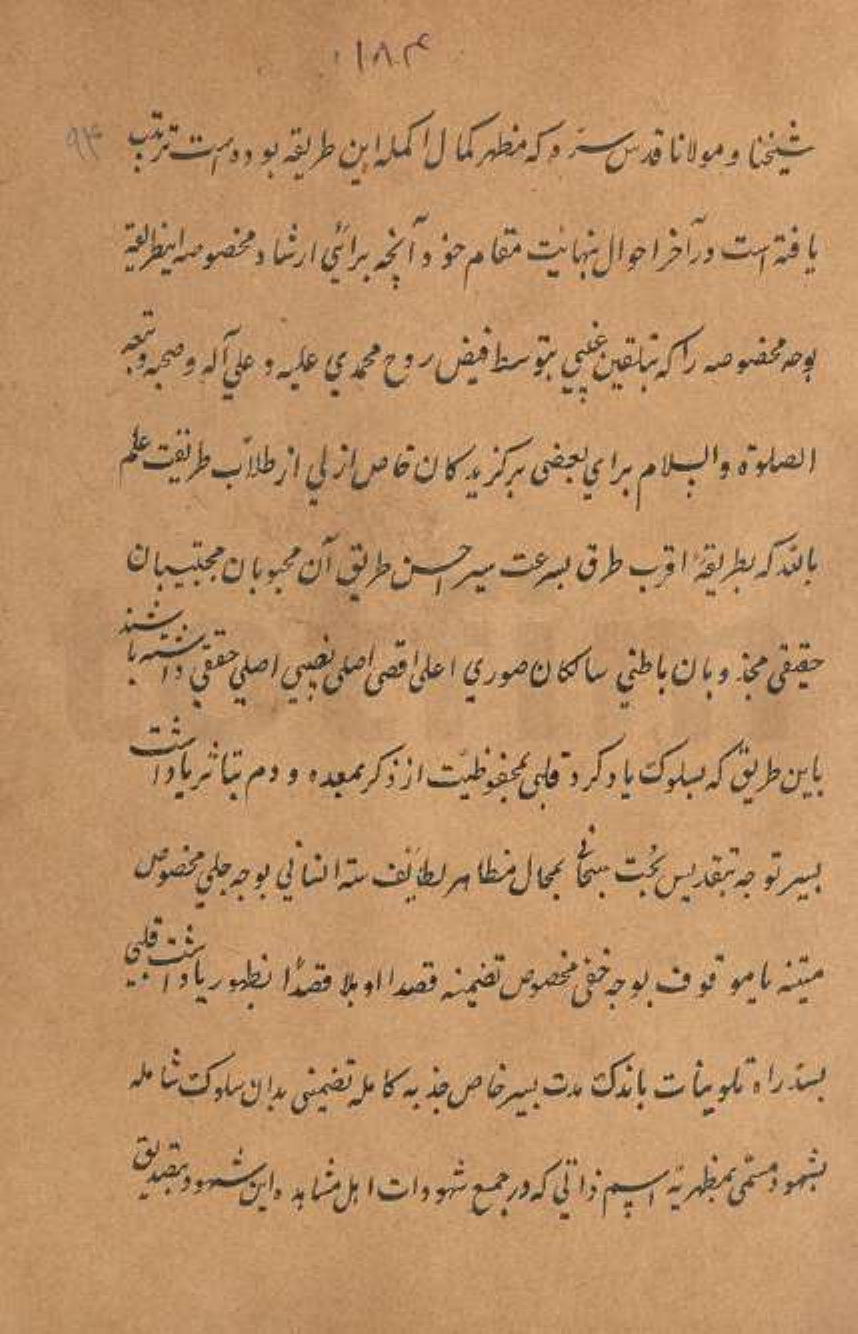 ۱۸۴
۹۴
شیخنا و مولانا قدس سره که مظهر کمال اکمله این طریقه بوده است ترتیب
یافته است در آخر احوال نهایت مقام خود آنچه برائی ارشاد مخصوصه اینطریقه
بوجه مخصوصه را که بتلقین غیبی بتوسط فیض روح محمدی علیه و علی آله وصحبه وتبعه
الصلوة والسلام برای بعضی برگزیدگان خاص ازلی از طلاب طریقت علم
بالله که بطریقهٔ اقرب طرق بسرعت سیر احسن طریق آن محبوبان مجتبیان
حقیقی مجذوبان باطنی سالکان صوری اعلی اقصی اصلی نصیبی اصلی حقیقی داشته باشند
باین طریق که بسلوک یادکرد قلبی بمحفوظیت از ذکر بمعده و دم بتاثر یادداشت
بسیر توجه بتقدیس بمحال مظاهر لطائف سته انسانی بوجه جلی مخصوص
با موقوف بوجه خفی مخصوص تضمینه قصدا او بلا قصدًا بظهور یادداشت قلبی
راه تلوینات باندک مدت بسیر خاص جذبه کامله تضمنی بدان سلوک شامله
بشهود مسمی بمظهریّه اسم ذاتی که در جمع شهودات اهل مشاهده این شهود بتصدیق